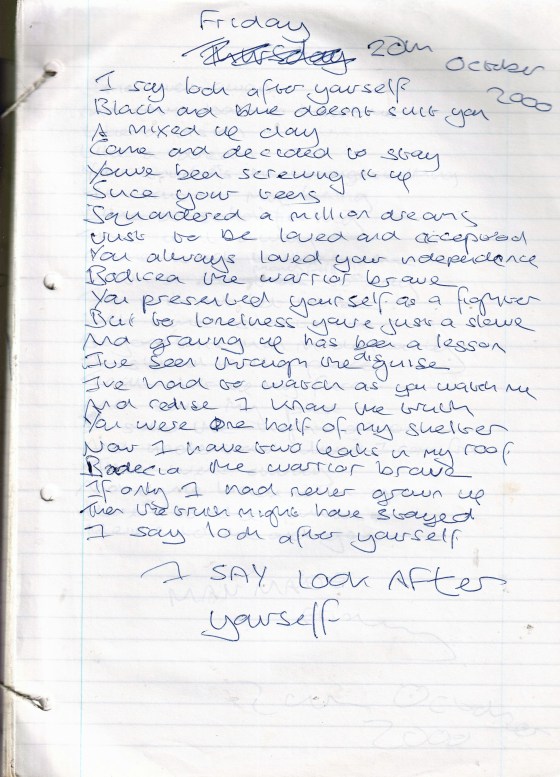 Friday
Thursday 20th
October
2000
I say look after yourself
Black and blue doesnt suit you
A mixed up day
Came and decided to stay
Youve been screwing it up
Since your teens
Squandered a million dreams
Just to be loved and accepted
You always loved your independence
Bodicea the warrior brave
You presented yourself as a fighter
But to loneliness youre just a slave
And growing up has been a lesson
I've seen through the disguise
I've had to watch as you watch me
And realise I know the truth
You were one half of my shelter
Now I have two leaks in my roof
Bodecia the warrior brave
If only I had never grown up
Then the truth might have stayed
I say look after yourself
I SAY LOOK AFTer
yourself